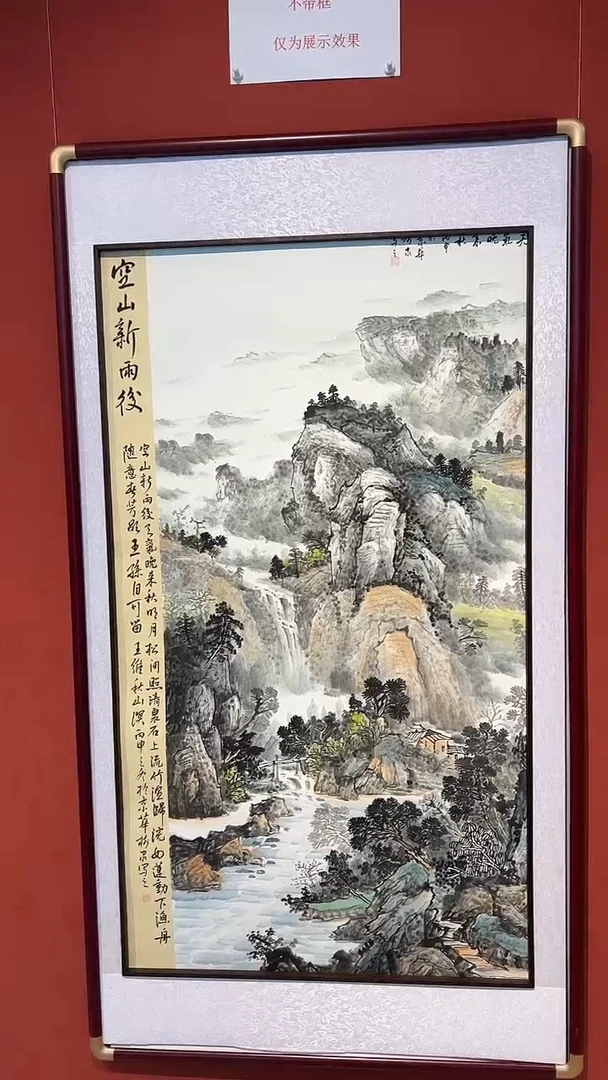 不带框
仅为展示效果
天氣晚來秋
丙申
京華
空山新雨後
空山新雨後天氣晚来秋明月松间照清泉石上流竹渲歸浣女蓮動下漁舟
随意春芳歇王孫自可留王維秋山溟丙申之冬於京華写之